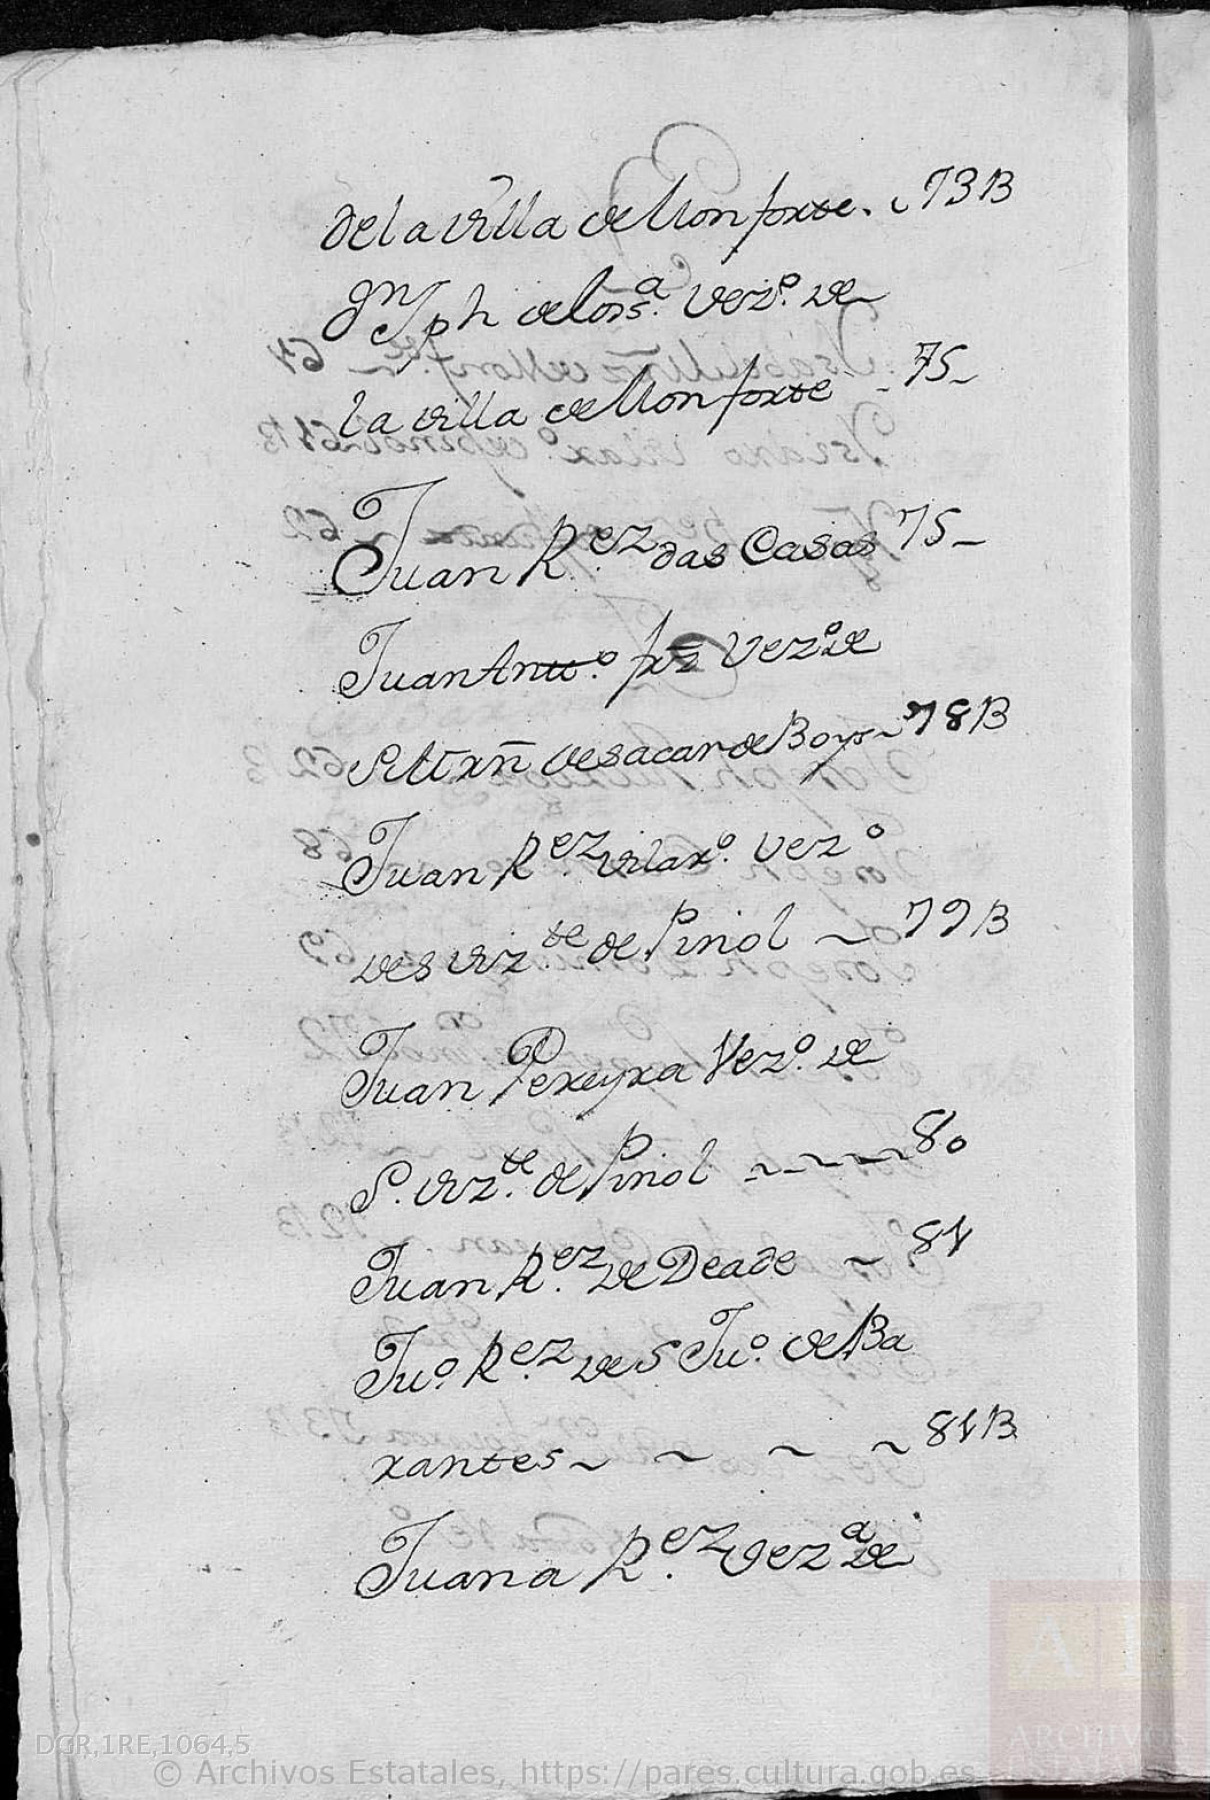 de la villa de Monforte. 73B
Jph de Vez.º de
la villa de Monforte - 75-
Juan R.ez das Casas 75-
Juan Antt.º frz Vez.º de
de sacar de Boys 78B
Juan R.ez vilar.º Vez.º
de S Viz.te de Piñol ~ 79B
Juan Pereyra Vez.º de
S. Viz.te de Piñol ~-~-~ 80
Juan R.ez de Deade ~ 81
Ju.º R.ez de S Ju.º de Ba
rantes ~ ~ ~ ~ 81B
Juana R.ez Vez.ª de
DGR,1RE,1064,5
© Archivos Estatales, https://pares.cultura.gob.es
AE
ARCHIVOS
ESTATALES